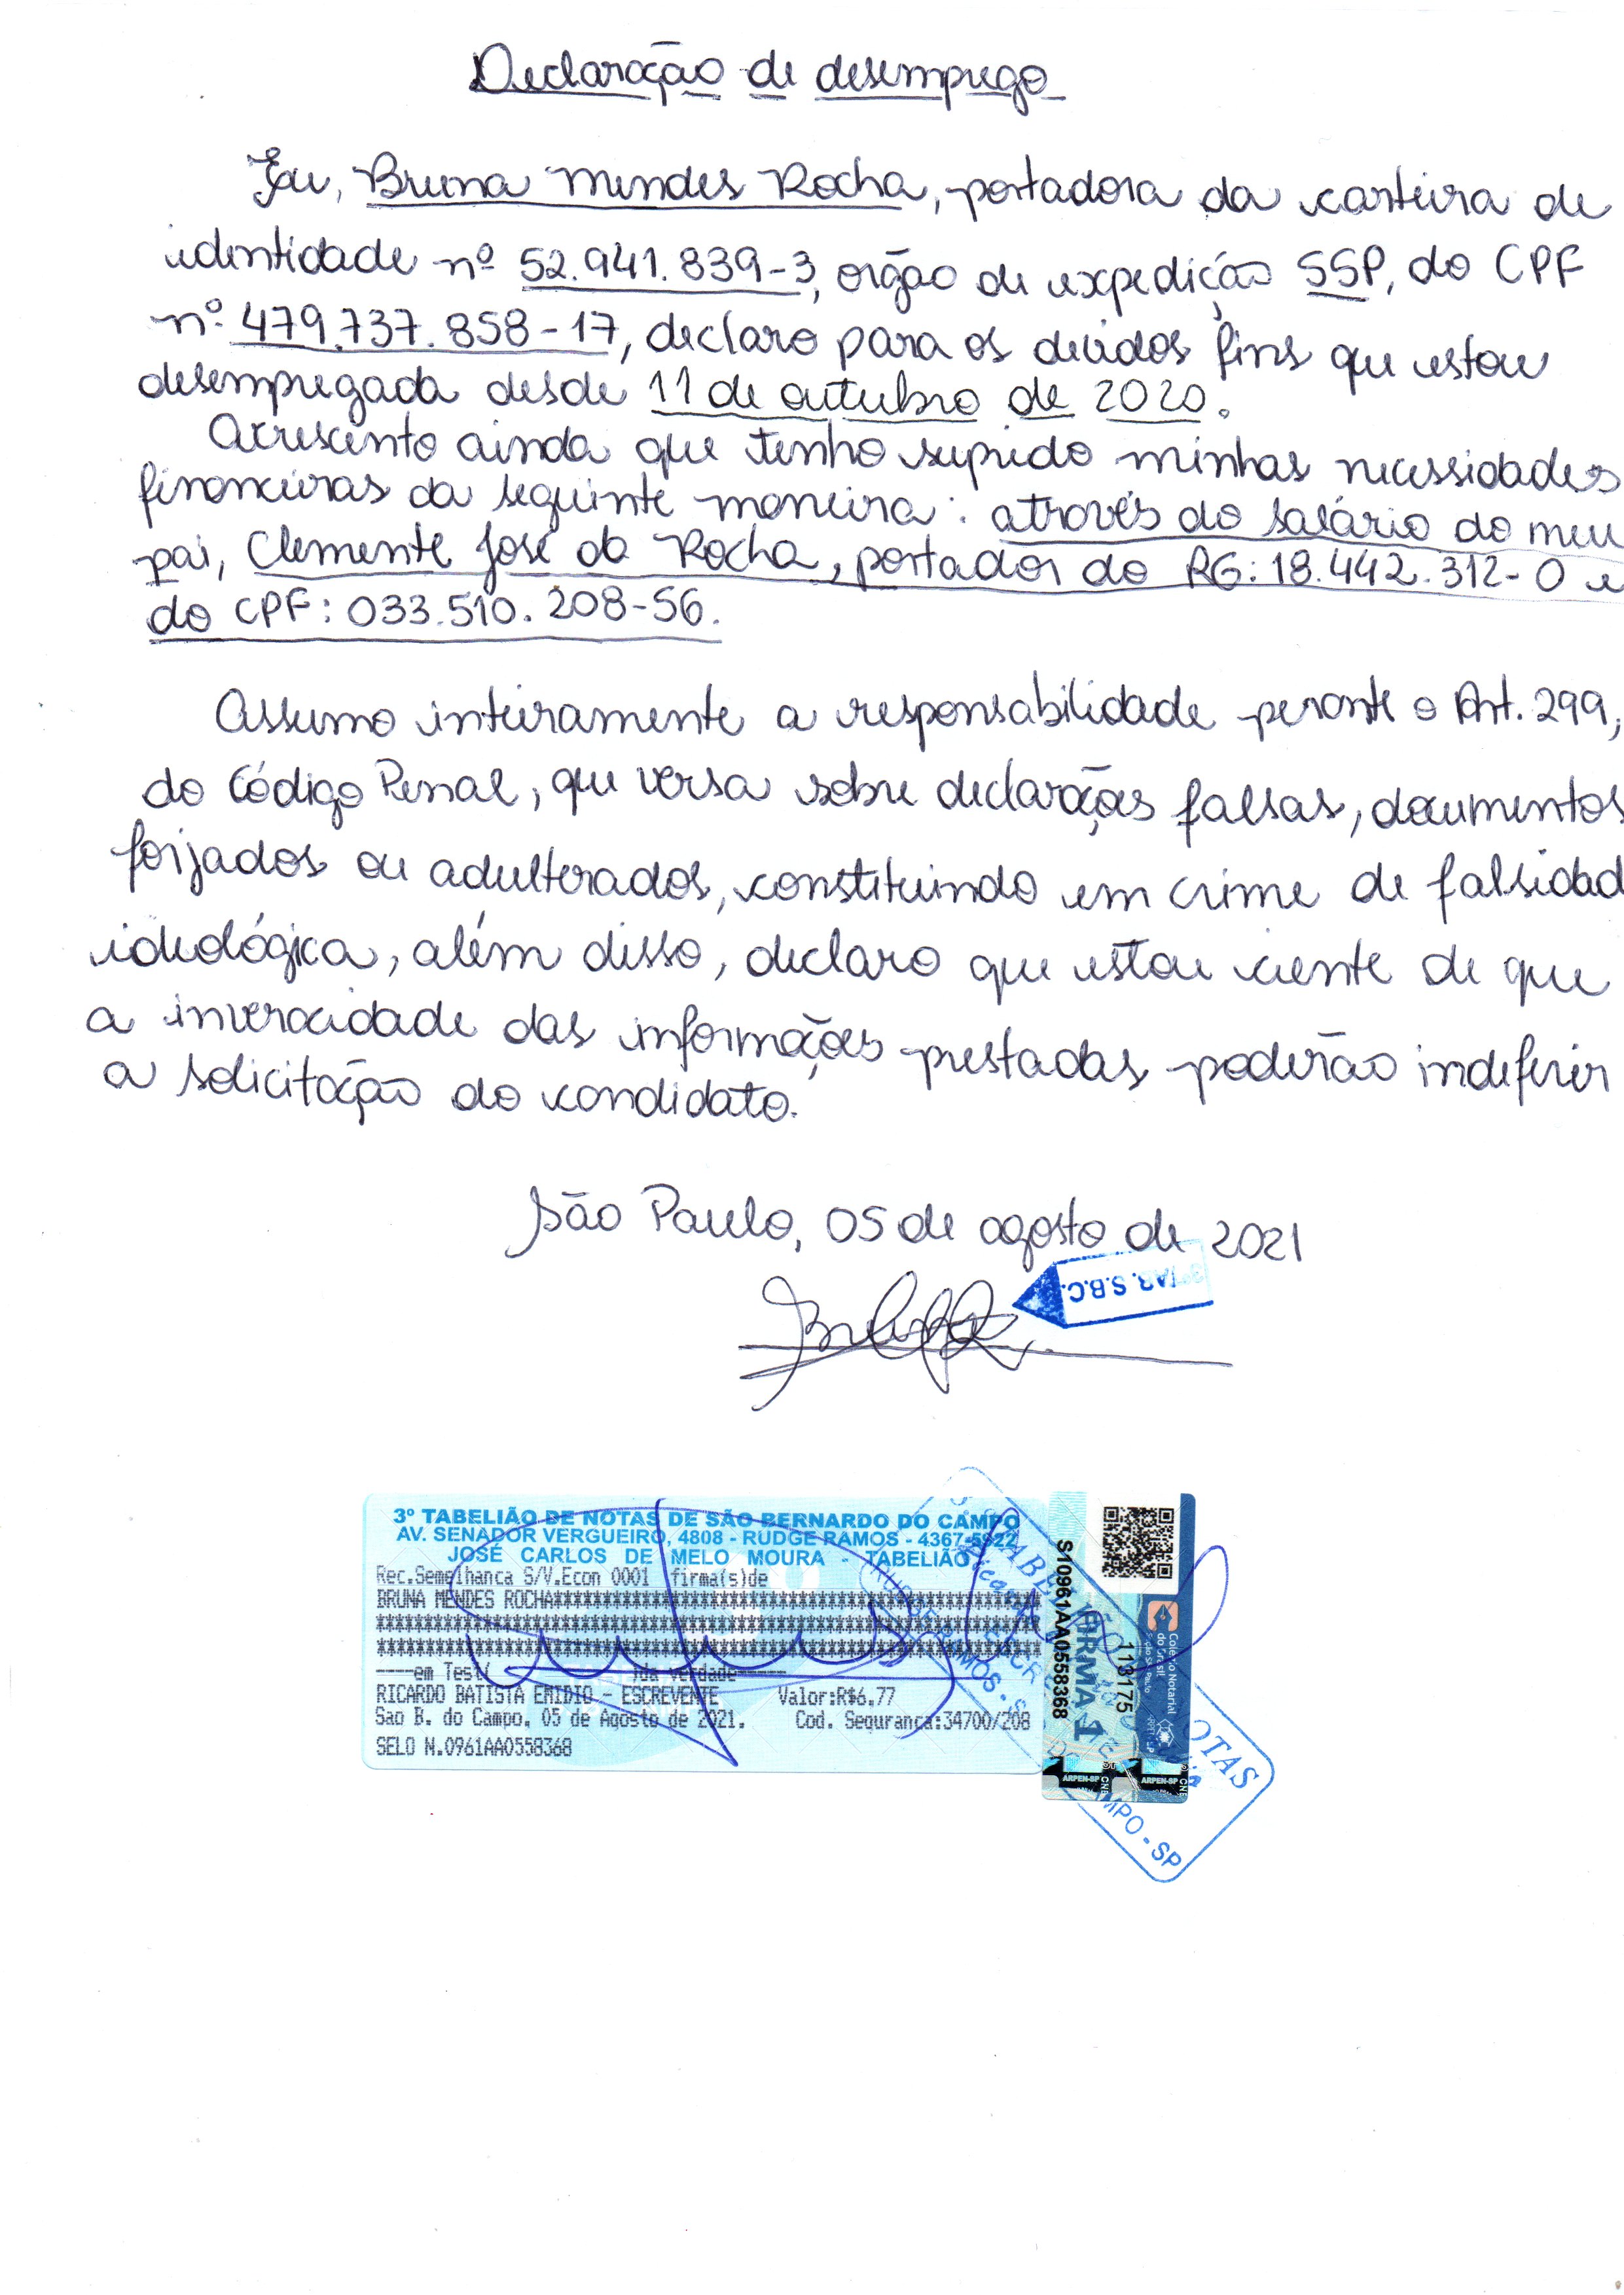 Declaração de desemprego
Eu, Bruna Mendes Rocha, portadora da carteira de
identidade nº 52.941.839-3, orgão de expedição SSP, do CPF
nº 479.737.858-17, declaro para os devidos fins que estou
desempregada desde 11 de outubro de 2020.
Acrescento ainda que tenho suprido minhas necessidades
financeiras da seguinte maneira: através do salário do meu
pai, Clemente José da Rocha, portador do RG: 18.442.312-0 e
do CPF: 033.510.208-56.
Assumo inteiramente a responsabilidade perante o Art. 299,
do Código Penal, que versa sobre declarações falsas, documentos
forjados ou adulterados, constituindo em crime de falsidad
ideológica, além disso, declaro que estou ciente de que
a inveracidade das informações prestadas poderão indeferir
a solicitação do candidato.
São Paulo, 05 de agosto de 2021
3º TAB. S.B.C.
3º TABELIÃO DE NOTAS DE SÃO BERNARDO DO CAMPO
AV. SENADOR VERGUEIRO, 4808 - RUDGE RAMOS - 4367-5922
JOSÉ CARLOS DE MELO MOURA - TABELIÃO
Rec.Semelhanca S/V.Econ 0001 firma(s)de
BRUNA MENDES ROCHA
em Test da verdade
RICARDO BATISTA EMIDIO - ESCREVENTE Valor:R$6,77
Sao B. do Campo, 05 de Agosto de 2021. Cod. Seguranca:34700/208
SELO N.0961AA0558368
S10961AA0558368
FIRMA 1
113175
Colégio Notarial
do Brasil
São Paulo
ARPEN-SP
ARPEN-SP
RUDGE RAMOS - S
OTAS
MPO - SP